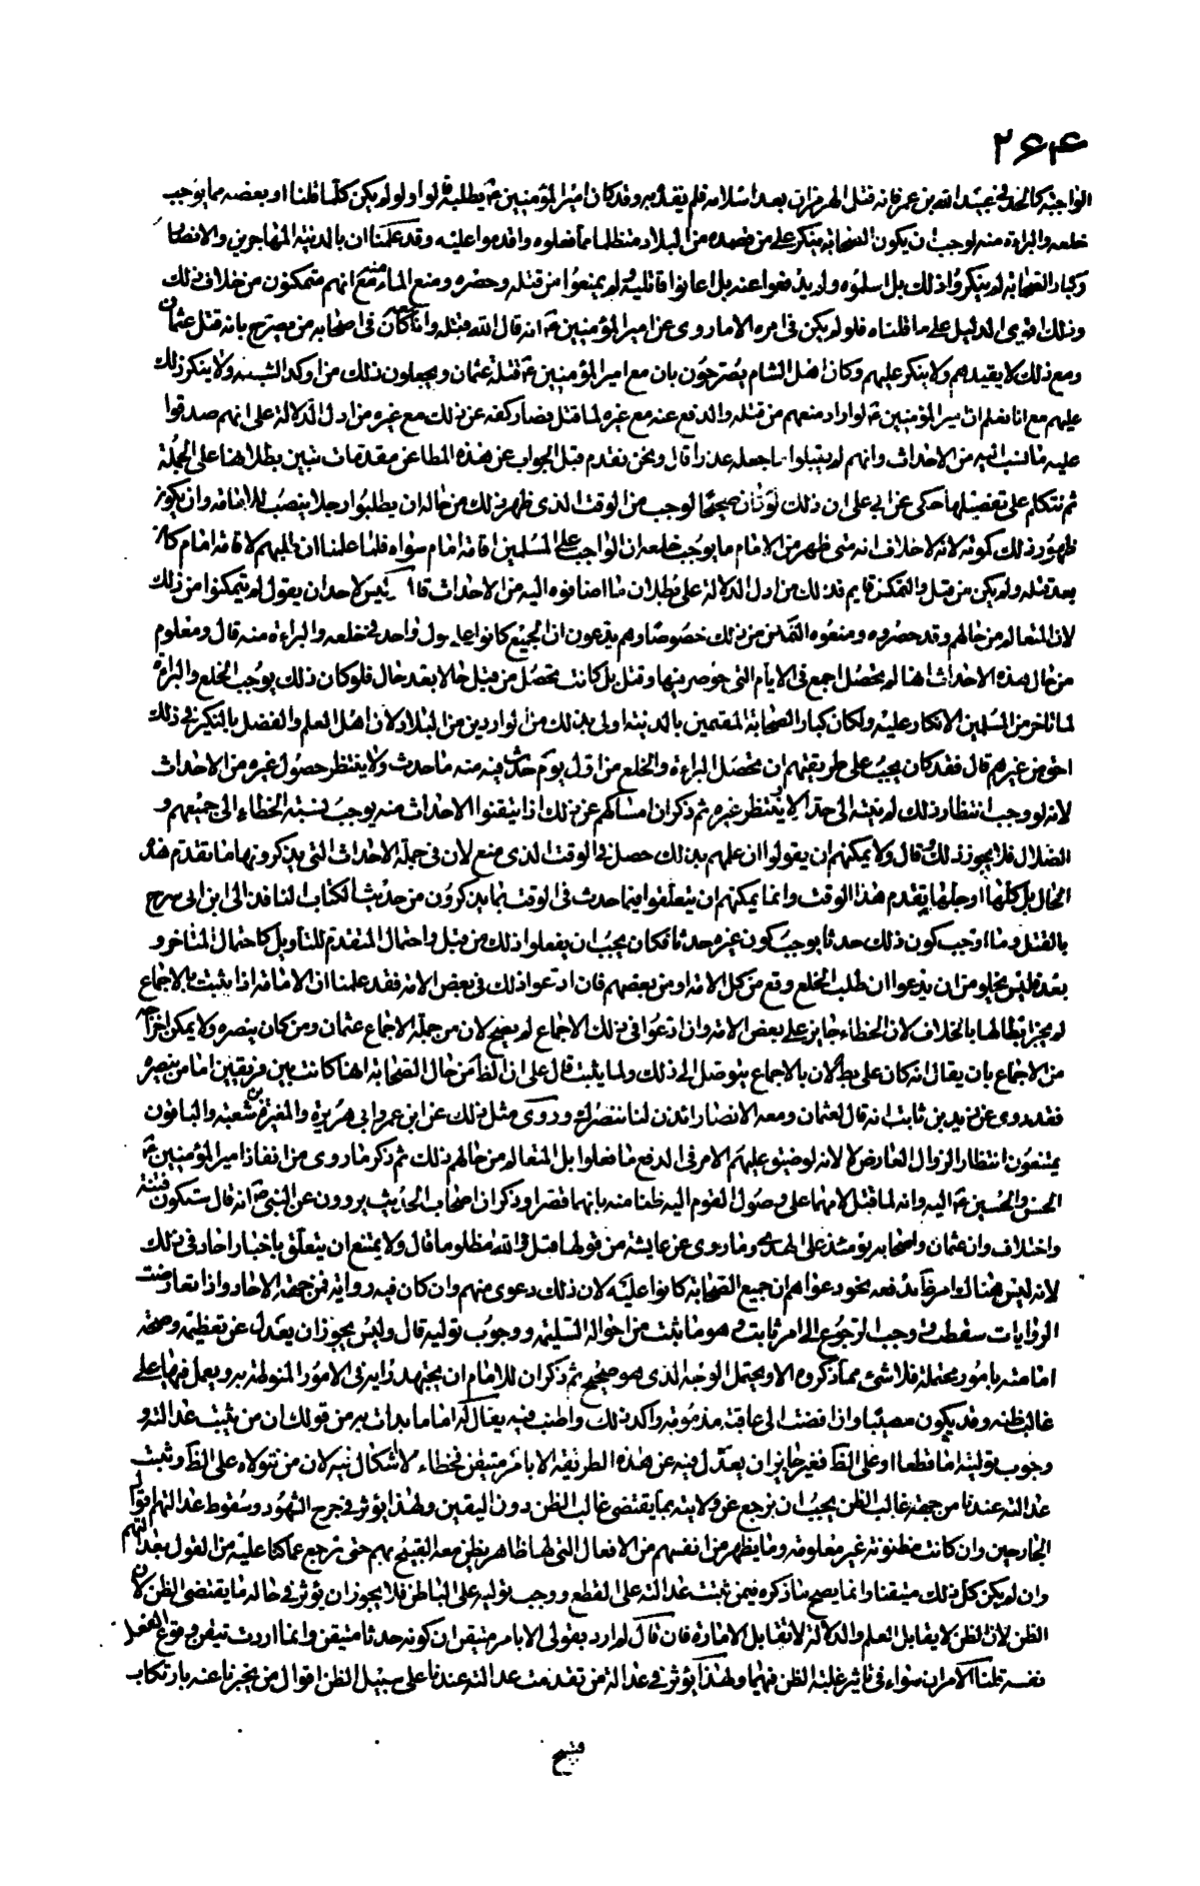 ۲۶۴
الواجبة كالحد في عبيد الله بن عمر فانه قتل الهرمزان بعد اسلامه فلم يقد به وقد كان امير المؤمنين ع يطلبه قالوا ولو لم يكن كلما قلنا او بعضه مما يوجب
خلعه والبراءة منه لوجب ان يكون الصحابة ينكر على من قصده من البلاد متظلما مما فعلوه واقدموا عليه وقد علمنا ان بالمدينة المهاجرين والانصار
وكبار الصحابة لم ينكروا ذلك بل اسلموه ولم يدفعوا عنه بل اعانوا قاتليه ولم يمنعوا من قتله وحصره ومنع الماء منه مع انهم متمكنون من خلاف ذلك
وذلك اقوى الدليل على ما قلناه فلو لم يكن في امره الا ما روى عن امير المؤمنين ع انه قال الله قتله وانا معه وكان في اصحابه من يصرح بانه قتل عثمان
ومع ذلك لا يقيدهم ولا ينكر عليهم وكان اهل الشام يصرحون بان مع امير المؤمنين ع قتلة عثمان ويجعلون ذلك من اوكد الشبه ولا ينكر ذلك
عليهم مع انا نعلم ان امير المؤمنين ع لو اراد منعهم من قتله والدفع عنه مع غيره لما قتل فصار كفه عن ذلك مع غيره من ادل الدلالة على انهم صدقوا
عليه ما نسب اليه من الاحداث وانهم لم يقبلوا ما جعله عذرا قال ونحن نقدم قبل الجواب عن هذه المطاعن مقدمات تبين بطلانها على الجملة
ثم نتكلم على تفصيلها حكى عن ابى على ان ذلك لو كان صحيحا لوجب من الوقت الذى ظهر ذلك من حاله ان يطلبوا رجلا ينصب للامامة وان يكون
ظهور ذلك كموته لانه لا خلاف انه متى ظهر من الامام ما يوجب خلعه ان الواجب على المسلمين اقامة امام سواه فلما علمنا ان طلبهم لاقامة امام كان
بعد قتله ولم يكن من قبل والتمكن قايم فذلك من ادل الدلالة على بطلان ما اضافوه اليه من الاحداث قال وليس لاحد ان يقول لم يتمكنوا من ذلك
لان المتعالم من حالهم وقد حصروه ومنعوه التمكن من ذلك خصوصا وهم يدعون ان الجميع كانوا على قول واحد في خلعه والبراءة منه قال ومعلوم
من حال هذه الاحداث انها لم يحصل اجمع في الايام التى حوصر فيها وقتل بل كانت تحصل من قبل حالا بعد حال فلو كان ذلك يوجب الخلع والبراءة
لما تاخر من المسلمين الانكار عليه ولكان كبار الصحابة المقيمين بالمدينة اولى بذلك من الواردين من البلاد لان اهل العلم والفضل بالنكير في ذلك
احق من غيرهم قال فقد كان يجب على طريقتهم ان يحصل البراءة والخلع من اول يوم حدث فيه منه ما حدث ولا ينتظر حصول غيره من الاحداث
لانه لو وجب انتظار ذلك لم ينته الى حد الا ينتظر غيره ثم ذكر ان امساكهم عن ذلك اذا تيقنوا الاحداث منه يوجب نسبة الخطاء الى جميعهم و
الضلال فلا يجوز ذلك قال ولا يمكنهم ان يقولوا ان علمهم بذلك حصل في الوقت الذى منع لان في جملة الاحداث التى يذكرونها ما تقدم هذه
الحال بل كلها او جلها يقدم هذا الوقت وانما يمكنهم ان يتعلقوا فيما حدث في الوقت بما يذكرون من حديث الكتاب النافذ الى ابن ابى سرح
بالقتل وما اوجب كون ذلك حدثا يوجب كون غيره حدثا فكان يجب ان يفعلوا ذلك من قبل واحتمال المتقدم للتاويل كاحتمال المتاخر و
بعد فليس يخلو من ان يدعوا ان طلب الخلع وقع من كل الامة او من بعضهم فان ادعوا ذلك في بعض الامة فقد علمنا ان الامامة اذا يثبت بالاجماع
لم يجز ابطالها بالخلاف لان الخطاء جايز على بعض الامة وان ادعوا في ذلك الاجماع لم يصح لان من جملة الاجماع عثمان ومن كان ينصره ولا يمكن اخراجه
من الاجماع بان يقال انه كان على باطل لان بالاجماع يتوصل الى ذلك ولما يثبت قال على ان الظ من حال الصحابة انها كانت بين فريقين اما من ينصره
فقد روى عن زيد بن ثابت انه قال لعثمان ومعه الانصار ائذن لنا ننصرك وروى مثل ذلك عن ابن عمر وابى هريرة والمغيرة بن شعبة والباقون
يمتنعون انتظار الزوال العارض لا لانه لو ضيق عليهم الامر في الدفع ما فعلوا بل المتعالم من حالهم ذلك ثم ذكر ما روى من انفاذ امير المؤمنين ع
الحسن والحسين ع اليه وانه لما قتل لامهما على وصول القوم اليه ظنا منه بانهما قصرا وذكر ان اصحاب الحديث يروون عن النبى ص انه قال ستكون فتنة
واختلاف وان عثمان واصحابه يومئذ على الهدى وما روى عن عايشة من قولها قتل والله مظلوما قال ولا يمتنع ان يتعلق باخبار احاد في ذلك
لانه ليس هناك امر ظاهر يدفعه نحو دعواهم ان جميع الصحابة كانوا عليه لان ذلك دعوى منهم وان كان فيه رواية فمن جهة الاحاد واذا تعارضت
الروايات سقطت ووجب الرجوع الى امر ثابت وهو ما يثبت من احواله السليمة ووجوب توليه قال وليس يجوز ان يعدل عن تعظيمه وصحة
امامته بامور محتملة فلا شئ مما ذكروه الا ويحتمل الوجه الذى هو صحيح ثم ذكر ان للامام ان يجتهد رايه في الامور المنوطة به ويعمل فيها على
غالب ظنه وقد يكون مصيبا واذا افضت الى عاقبة مذمومة واكد ذلك واطنب فيه يقال له اما ما بدات به من قولك ان من يثبت عدالته و
وجوب توليته اما قطعا او على الظ فغير جايز ان يعدل فيه عن هذه الطريقة الا بامر متيقن فخطاء لا اشكال فيه لان من نتولاه على الظ وثبت
عدالته عندنا من جهة غالب الظن يجب ان نرجع عن ولايته بما يقتضى غالب الظن دون اليقين ولهذا يؤثر في جرح الشهود وسقوط عدالتهم اقوال
الجارحين وان كانت مظنونة غير معلومة وما يظهر من انفسهم من الافعال التى لها ظاهر يظن معه القبيح بهم حتى نرجع عما كنا عليه من القول بعدالتهم
وان لم يكن كل ذلك متيقنا وانما يصح ما ذكره فيمن ثبتت عدالته على القطع ووجب توليه على الباطن فلا يجوز ان يؤثر في حاله ما يقتضى الظن لان
الظن لان الظن لا يقابل العلم والدلالة لا تقابل الامارة فان قال لم ارد بقولى الا بامر متيقن ان كونه حدثا متيقن وانما اردت تيقن وقوع الفعل
نفسه قلنا الامران سواء في تاثير غلبة الظن فيهما ولهذا يؤثر في عدالة من تقدمت عدالته عندنا على سبيل الظن اقوال من يخبرنا عنه بارتكاب
قبيح